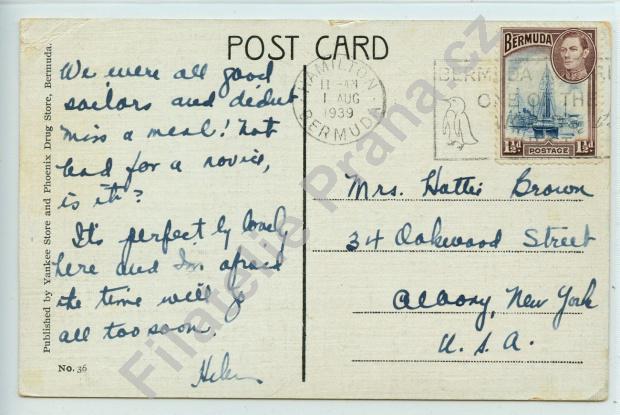 POST CARD
Published by Yankee Store and Phoenix Drug Store, Bermuda.
We were all good
sailors and didn't
miss a meal! Not
bad for a novice,
is it?
It's perfectly lovely
here and I'm afraid
the time will go
all too soon.
Helen
No. 36
HAMILTON
11-AM
1 AUG
1939
BERMUDA
BERMUDA
ONE OF THE
BERMUDA
POSTAGE
1½d 1½d
Mrs. Hattie Brown
34 Oakwood Street
Albany, New York
U.S.A.
Filatelie Praha.cz